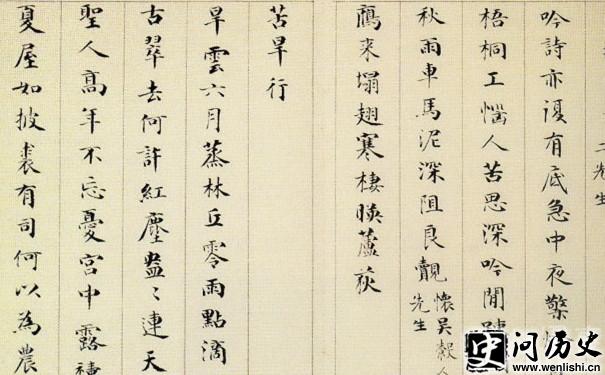 二先生
吟詩亦復有底急中夜檠
梧桐工惱人苦思深吟閒
秋雨車馬泥深阻良覿懷吳穀人
先生
鷹来塌翅寒棲暎蘆荻
苦旱行
旱雲六月蒸林丘零雨點滴
古翠去何許紅塵盎〻連天
聖人高年不忘憂宮中露禱
夏屋如披裘有司何以為農
史
问历史
www.wenlishi.cn